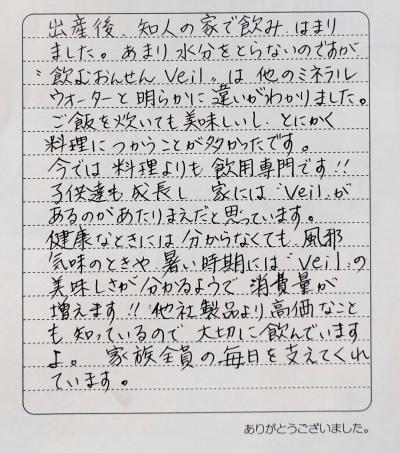 出産後、知人の家で飲み、はまり
ました。あまり水分をとらないのですが
〝飲むおんせん Veil〟は他のミネラル
ウォーターと明らかに違いがわかりました。
ご飯を炊いても美味しいし、とにかく
料理につかうことが多かったです。
今では料理よりも飲用専門です!!
子供達も成長し 家には〝Veil〟が
あるのがあたりまえだと思っています。
健康なときには分からなくても 風邪
気味のときや 暑い時期には〝Veil〟の
美味しさが分かるようで 消費量が
増えます!! 他社製品より高価なこと
も知っているので 大切に飲んでいます
よ。 家族全員の毎日を支えてくれ
ています。
ありがとうございました。